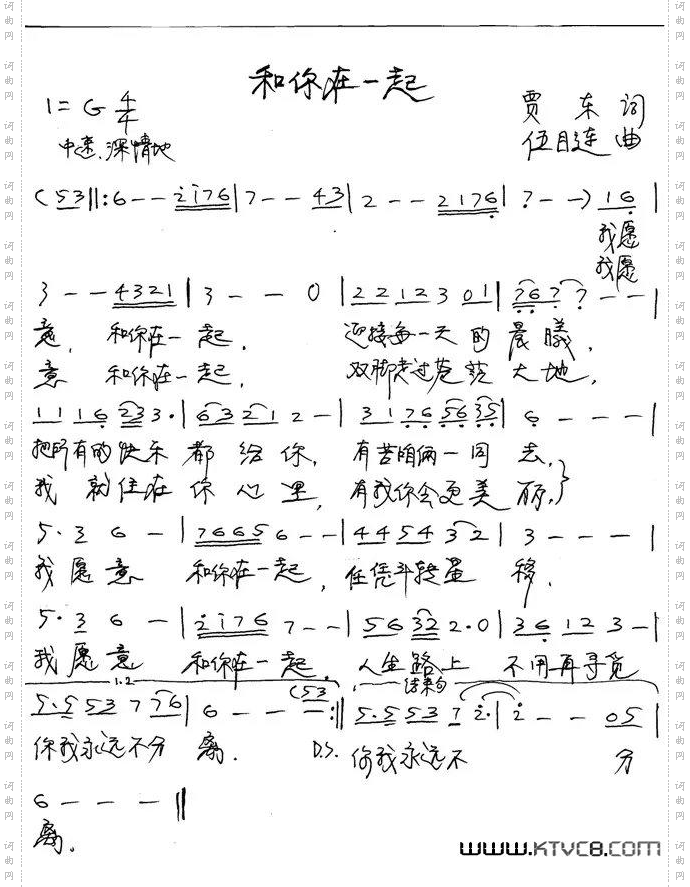 和你在一起
1=G 4/4
贾东 词
中速、深情地
伍目连 曲
(53‖:6--2176|7--43|2--2176|7--)16|
我愿
我愿
3--4321|3--0|2212301|7677--|
意, 和你在一起, 迎接每一天的晨曦,
意 和你在一起, 双脚走过苍茫大地,
1116233·|63212-|31765635|6---|
把所有的快乐都给你, 有苦咱俩一同去,
我就住在你心里, 有我你会更美丽,}
5·36-|76656--|445432|3---|
我愿意 和你在一起, 任凭斗转星移,
5·36-|21767--|56322·0|36123-|
我愿意 和你在一起, 人生路上 不用再寻觅
1.2 结束句
5·553776|6--(53:‖5·55312·|2--05|
你我永远不分离. D.S. 你我永远不 分
6---‖
离.
www.KTVC8.com
词曲网